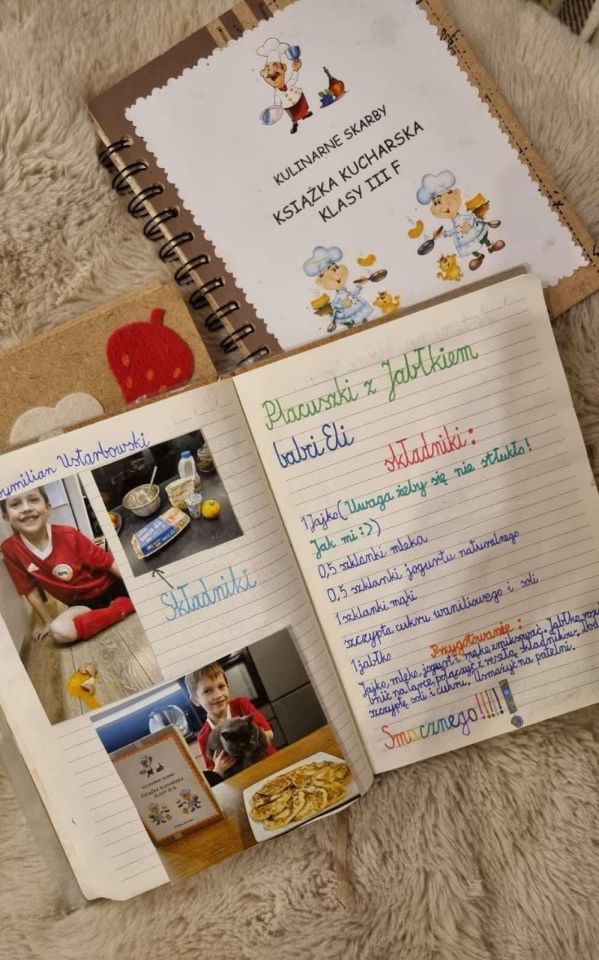 KULINARNE SKARBY
KSIĄŻKA KUCHARSKA
KLASY III F
Ustarbowski
Składniki
KULINARNE SKARBY
KSIĄŻKA KUCHARSKA
KLASY III F
Płacuszki z Jabłkiem
babci Eli
składniki:
1 Jajko (Uwaga żeby się nie stłukło!
Jak mi :))
0,5 szklanki mleka
0,5 szklanki jogurtu naturalnego
1 szklanki mąki
szczypta cukru waniliowego i soli
1 jabłko
Przygotowanie:
Jajko, mleko, jogurt i mąkę zmiksować. Jabłko
na tarce, połączyć z resztą składników,
szczyptę soli i cukru. Usmażyć na patelni.
Smacznego!!!!!